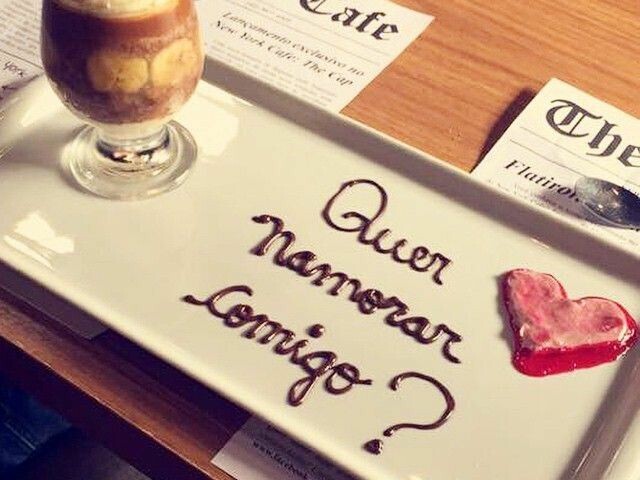 Cafe
Lançamento exclusivo no
New York Cafe: The Cap
York
The
Flatiron
Quer
namorar
comigo?
www.facebook